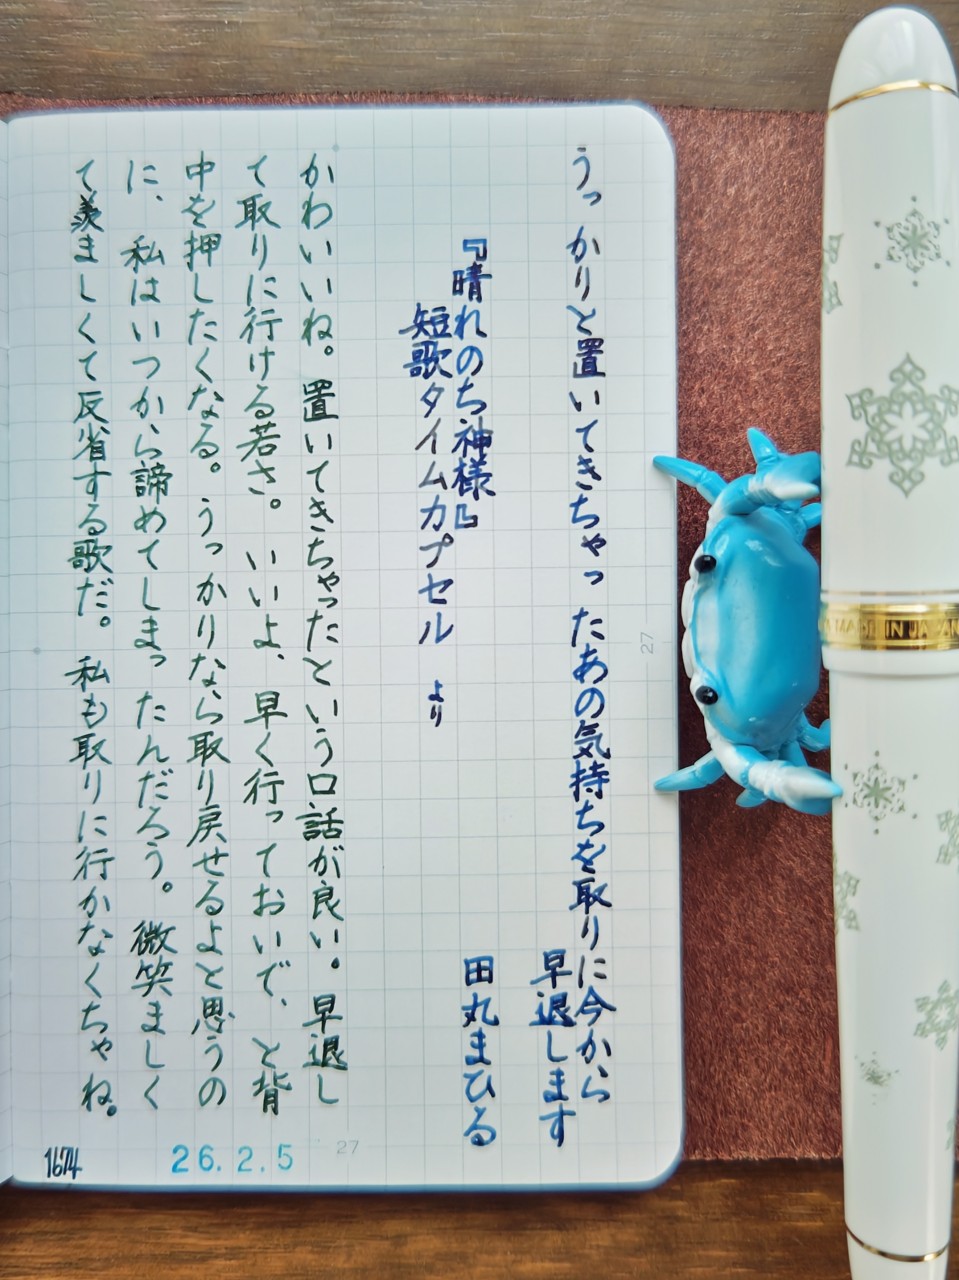 うっかりと置いてきちゃったあの気持ちを取りに今から
早退します
田丸まひる
『晴れのち神様』
短歌タイムカプセル より
かわいいね。置いてきちゃったという口話が良い。早退し
て取りに行ける若さ。いいよ、早く行っておいで、と背
中を押したくなる。うっかりなら取り戻せるよと思うの
に、私はいつから諦めてしまったんだろう。微笑ましく
て羨ましくて反省する歌だ。私も取りに行かなくちゃね。
1674
26.2.5
27
27